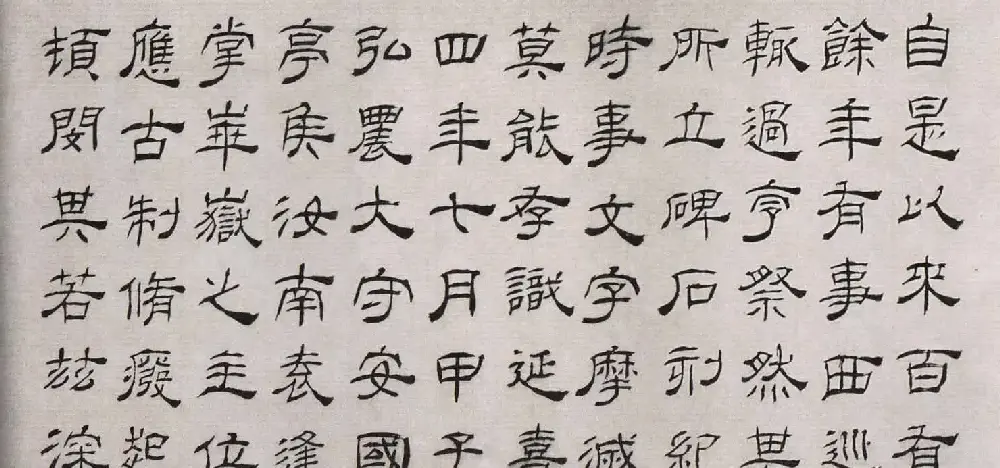 自是以來百有
餘年有事西巡
輒過亨祭然其
所立碑石刻紀
時事文字摩滅
莫能存識延熹
四年七月甲子
弘農大守安國
亭侯汝南袁逢
掌華嶽之主位
應古制脩廢起
頓閔其若茲深